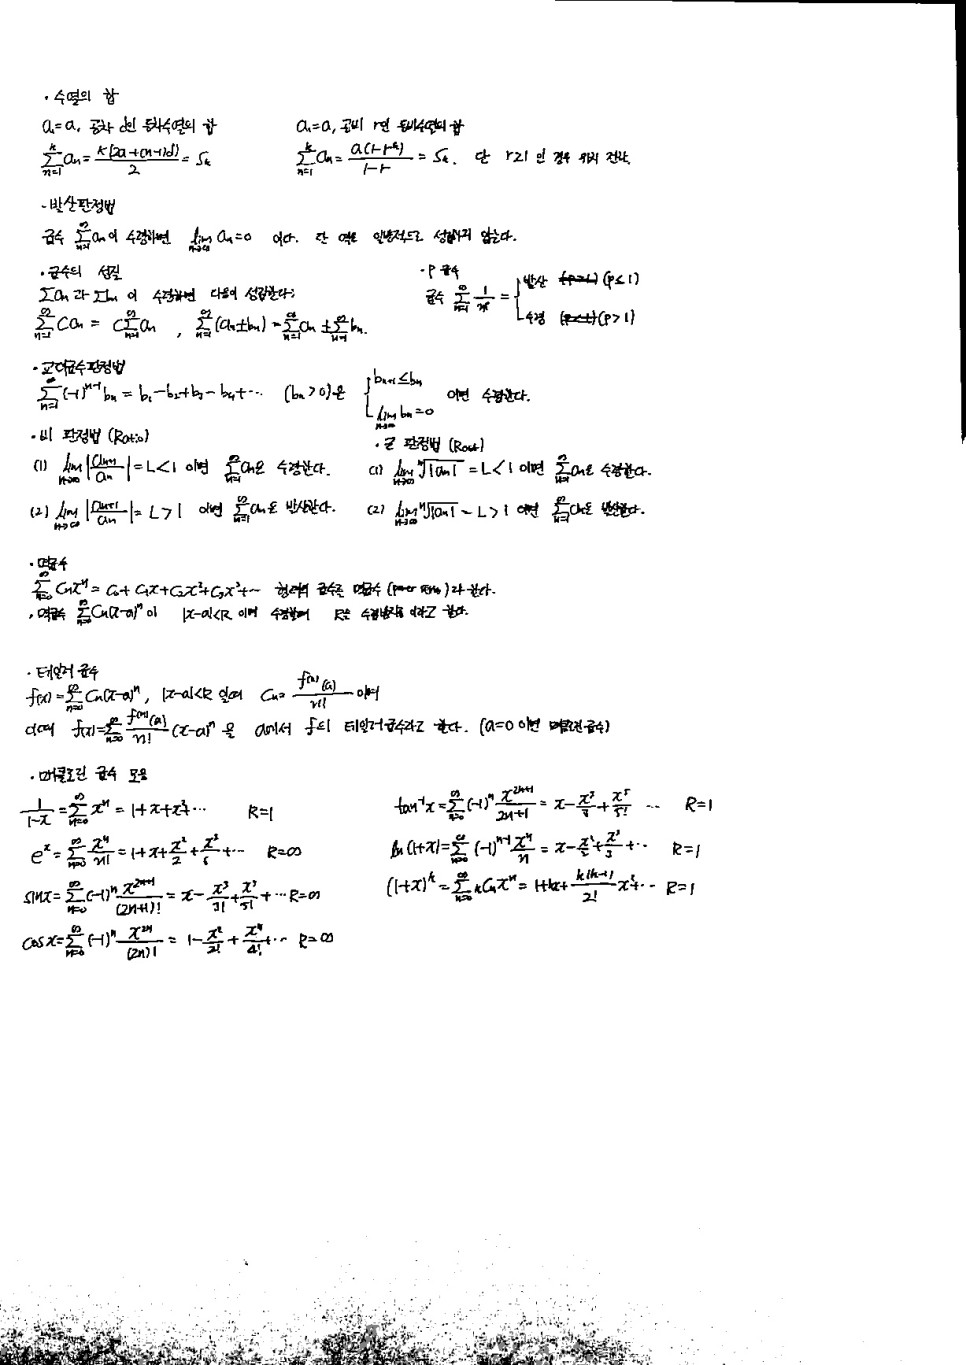 · 수열의 합
a₁=a, 공차 d인 등차수열의 합
a₁=a, 공비 r인 등비수열의 합
\sum_{n=1}^{k} a_n = \frac{k(2a+(n-1)d)}{2} = S_k
\sum_{n=1}^{k} a_n = \frac{a(1-r^k)}{1-r} = S_k. 단 r≥1 인 경우 위치
· 발산판정법
급수 \sum_{n=1}^{∞} a_n이 수렴하면 \lim_{n→∞} a_n=0 이다. 단 역은 일반적으로 성립하지 않는다.
· 급수의 성질
∑a_n 과 ∑b_n 이 수렴하면 다음이 성립한다;
\sum_{n=1}^{∞} Ca_n = C\sum_{n=1}^{∞} a_n , \sum_{n=1}^{∞} (a_n±b_n) = \sum_{n=1}^{∞} a_n ± \sum_{n=1}^{∞} b_n.
· P 급수
급수 \sum_{n=1}^{∞} \frac{1}{n^p} = { 발산 (p≤1)
수렴 (p>1)
· 교대급수판정법
\sum_{n=1}^{∞} (-1)^{n-1} b_n = b₁-b₂+b₃-b₄+··· (b_n>0)은 { b_{n+1}≤b_n
\lim_{n→∞} b_n=0 이면 수렴한다.
· 비 판정법 (Ratio)
(1) \lim_{n→∞} |\frac{a_{n+1}}{a_n}| = L<1 이면 \sum_{n=1}^{∞} a_n은 수렴한다.
(2) \lim_{n→∞} |\frac{a_{n+1}}{a_n}| = L>1 이면 \sum_{n=1}^{∞} a_n은 발산한다.
· 근 판정법 (Root)
(1) \lim_{n→∞} \sqrt[n]{|a_n|} = L<1 이면 \sum_{n=1}^{∞} a_n은 수렴한다.
(2) \lim_{n→∞} \sqrt[n]{|a_n|} = L>1 이면 \sum_{n=1}^{∞} a_n은 발산한다.
· 멱급수
\sum_{n=0}^{∞} C_n x^n = C₀+C₁x+C₂x²+C₃x³+··· 형태의 급수를 멱급수 (power series)라 한다.
· 멱급수 \sum_{n=0}^{∞} C_n(x-a)^n 이 |x-a|<R 이면 수렴할때 R을 수렴반지름 이라고 한다.
· 테일러 급수
f(x)=\sum_{n=0}^{∞} C_n(x-a)^n, |x-a|<R 일때 C_n=\frac{f^{(n)}(a)}{n!} 이며
이때 f(x)=\sum_{n=0}^{∞} \frac{f^{(n)}(a)}{n!}(x-a)^n 을 a에서 f의 테일러급수라고 한다. (a=0 이면 매클로린급수)
· 매클로린 급수 모음
\frac{1}{1-x} = \sum_{n=0}^{∞} x^n = 1+x+x²+··· R=1
e^x = \sum_{n=0}^{∞} \frac{x^n}{n!} = 1+x+\frac{x²}{2}+\frac{x³}{6}+··· R=∞
sinx = \sum_{n=0}^{∞} (-1)^n \frac{x^{2n+1}}{(2n+1)!} = x-\frac{x³}{3!}+\frac{x⁵}{5!}+··· R=∞
cosx = \sum_{n=0}^{∞} (-1)^n \frac{x^{2n}}{(2n)!} = 1-\frac{x²}{2!}+\frac{x⁴}{4!}+··· R=∞
tan⁻¹x = \sum_{n=0}^{∞} (-1)^n \frac{x^{2n+1}}{2n+1} = x-\frac{x³}{3}+\frac{x⁵}{5!} ··· R=1
ln(1+x) = \sum_{n=0}^{∞} (-1)^{n-1} \frac{x^n}{n} = x-\frac{x²}{2}+\frac{x³}{3}+··· R=1
(1+x)^k = \sum_{n=0}^{∞} {}_kC_n x^n = 1+kx+\frac{k(k-1)}{2!}x²+··· R=1